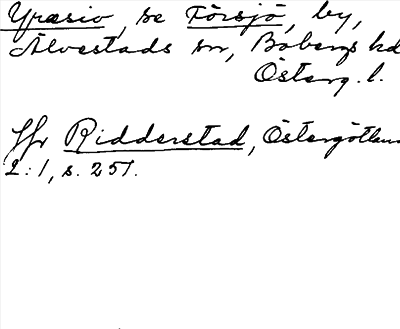 Yræsiv, se Försjö, by,
Älvestads sn, Bobergs hd
Österg. l.
Jfr Ridderstad, Östergötland
2:1, s. 251.